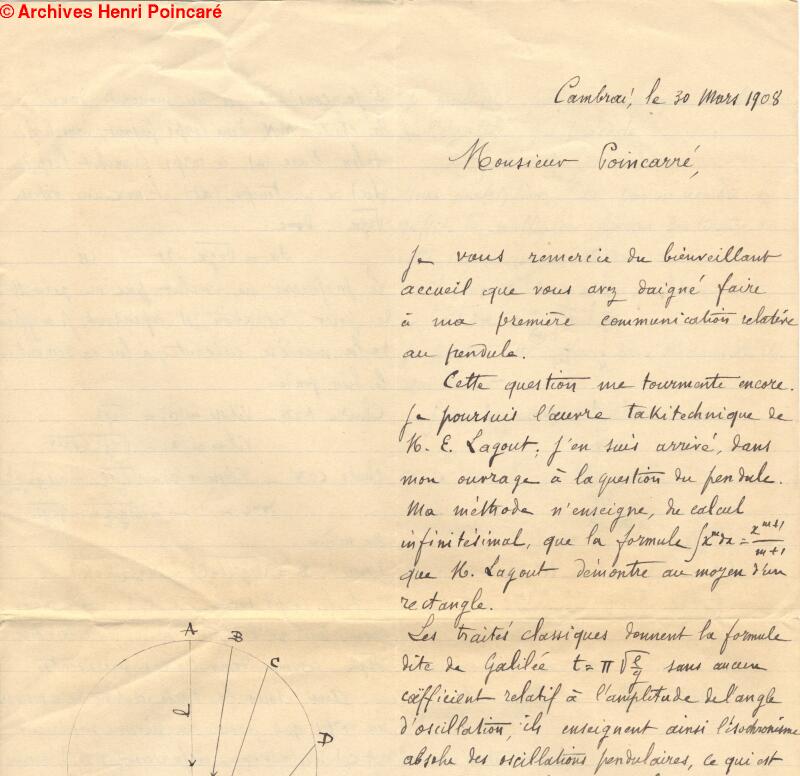 © Archives Henri Poincaré
Cambrai, le 30 Mars 1908
Monsieur Poincarré,
Je vous remercie du bienveillant
accueil que vous avez daigné faire
à ma première communication relative
au pendule.
Cette question me tourmente encore.
Je poursuis l'œuvre takitechnique de
M. E. Lagout; j'en suis arrivé, dans
mon ouvrage à la question du pendule.
Ma méthode n'enseigne, du calcul
infinitésimal, que la formule ∫xᵐdx = xᵐ⁺¹/m+1
que M. Lagout démontre au moyen d'un
rectangle.
Les traités classiques donnent la formule
dite de Galilée t = π √l/g sans aucun
coëfficient relatif à l'amplitude de l'angle
d'oscillation, ils enseignent ainsi l'isochronisme
absolu des oscillations pendulaires, ce qui est
A
B
C
D
l